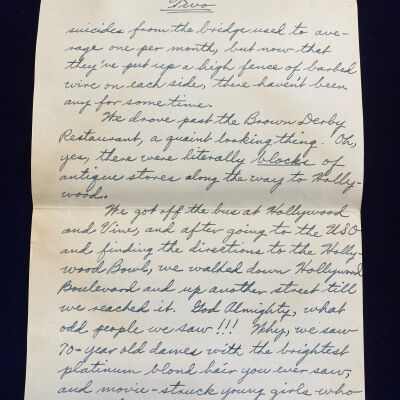 Two
suicides from the bridge used to ave-
rage one per month, but now that
they've put up a high fence of barbed
wire on each side, there haven't been
any for some time.
We drove past the Brown Derby
Restaurant, a quaint looking thing. Oh,
yes, there were literally blocks of
antique stores along the way to Holly-
wood.
We got off the bus at Hollywood
and Vine, and after going to the USO
and finding the directions to the Holly-
wood Bowl, we walked down Hollywood
Boulevard and up another street till
we reached it. God Almighty, what
odd people we saw!!! Why, we saw
70-year old dames with the brightest
platinum blond hair you ever saw,
and movie-struck young girls who